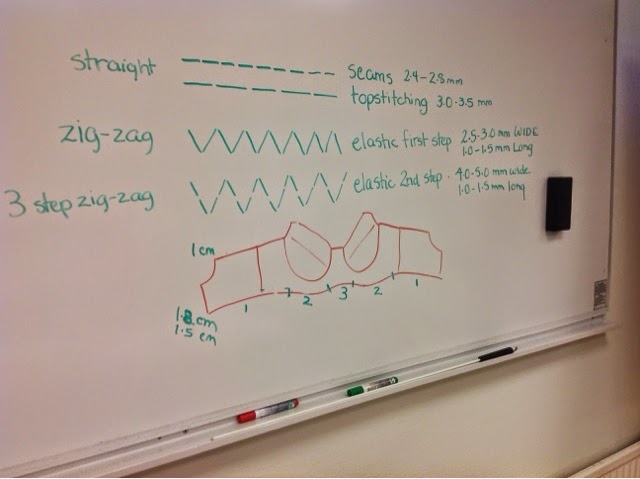 straight
seams 2.4-2.8mm
topstitching 3.0-3.5 mm
zig-zag
elastic first step 2.5-3.0mm WIDE
1.0-1.5mm Long
3 step zig-zag
elastic 2nd step. 4.0-5.0 mm wide
1.0-1.5mm long
1 cm
1 2 3 2 1
1.8 cm
1.5 cm